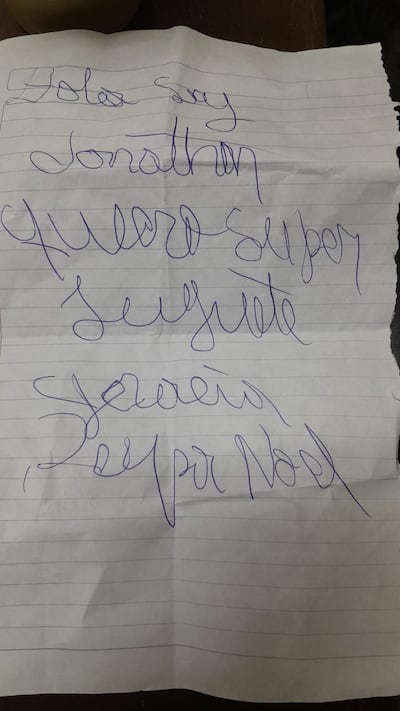 Hola Soy
Jonathan
quiero super
Juguete
Gracia
Papa Noel